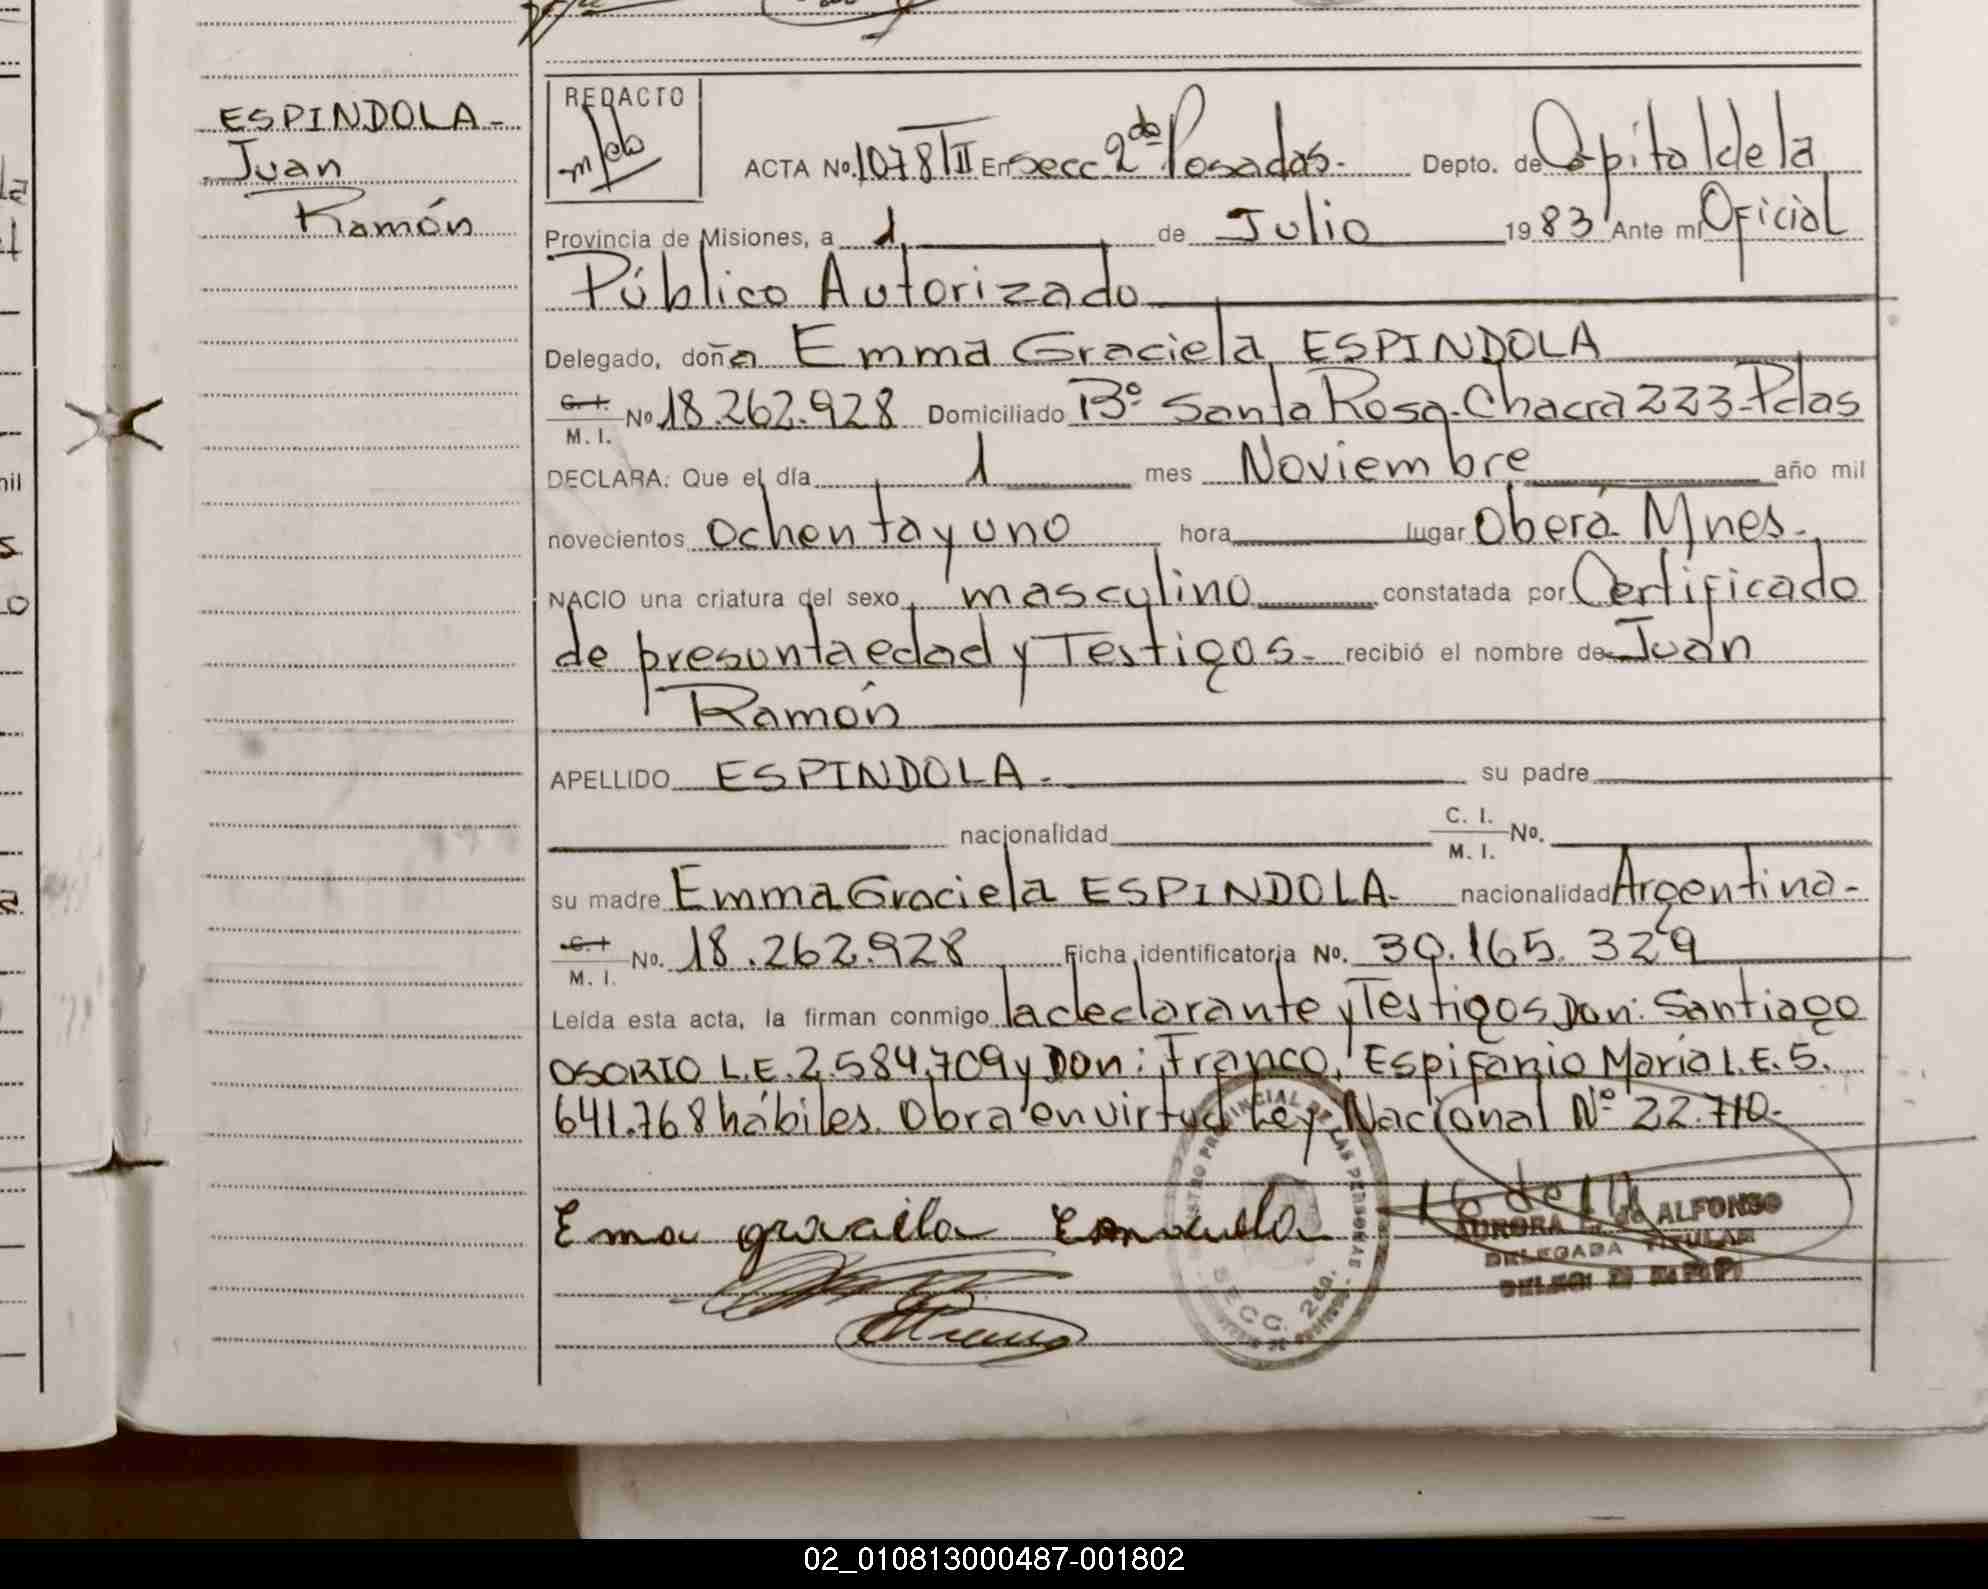 ESPINDOLA-
Juan
Ramón
REDACTO
ACTA No. 1078/II En secc 2da Posadas. Depto. de Capital de la
Provincia de Misiones, a 1 de Julio 1983 Ante mí Oficial
Público Autorizado
Delegado, doña Emma Graciela ESPINDOLA
C. I.
M. I. No 18.262.928 Domiciliado Bº Santa Rosa-Chacra 223-Pdas
DECLARA: Que el día 1 mes Noviembre año mil
novecientos ochenta y uno hora lugar Oberá Mnes.
NACIO una criatura del sexo masculino constatada por Certificado
de presunta edad y Testigos- recibió el nombre de Juan
Ramón
APELLIDO ESPINDOLA. su padre
nacionalidad C. I. M. I. No.
su madre Emma Graciela ESPINDOLA- nacionalidad Argentina-
C. I. M. I. No. 18.262.928 Ficha identificatoria No. 30.165.329
Leída esta acta, la firman conmigo la declarante y Testigos Don: Santiago
OSORIO L.E. 2.584.709 y Don: Franco, Espifanio María L.E. 5.
641.768 hábiles. Obra en virtud Ley Nacional Nº 22.710-
Ema gracila
ALFONSO
AURORA
DELEGADA TITULAR
SECC. 2da.
02_010813000487-001802